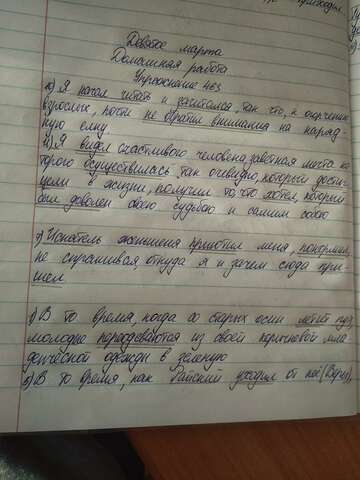 Девятое марта
Домашняя работа
Упражнение 463
к) Я начал читать и зачитался так что, к огорчению
взрослых, почти не обратил внимания на наряд-
ную елку
и) Я видел счастливого человека, заветная мечта ко
торого осуществилась так очевидно, который дости-
цели в жизни, получил то, что хотел, который
был доволен своею судьбою и самим собою
Искатель женьшеня приютил меня, покормил
не спрашивая, откуда я и зачем сюда при-
шел
) В то время, когда со старых осин летит пух
молодые переодеваются из своей коричневой мла
денческой одежды в зеленую
В то время, как Райский уходил от неё (Веры),